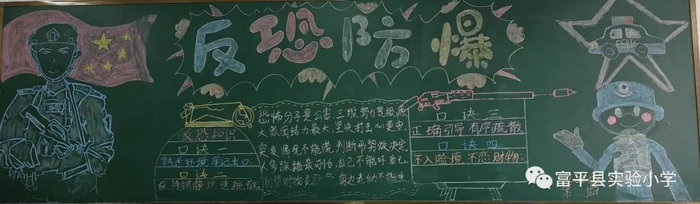 反恐防爆
反恐知识
口诀一
熟悉环境 牢记出口
口诀二
保持镇静 迅速疏散
恐怖分子是公害,三股势力是根源
大家团结力最大,坚决打击心更安
突发情况不能慌,判断形势做决定
人多踩踏最可怕,自己不能吓自己
口诀三
正确引导 有序疏散
口诀四
不入险境 不恋财物
富平县实验小学